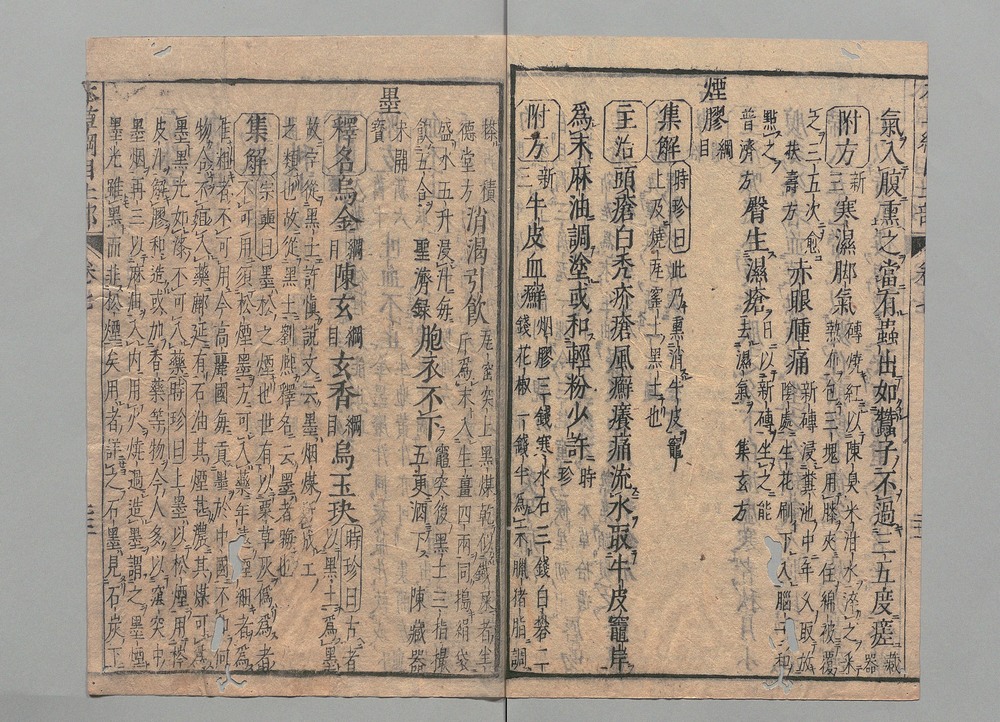 氣入腹熏之當有蟲出如蠶子不過三五度瘥 藏器
附方 新三 寒濕脚氣 磚燒紅以陳臭米泔水淬之乘熱布包三塊用膝夾住綿被覆
之三五次愈 扶壽方 赤眼腫痛 新磚浸糞池中年久取放陰處生花刷下入腦子和
點之 普濟方 臀生濕瘡 日以新磚坐之能去濕氣 集玄方
煙膠 綱目
集解 時珍曰此乃熏消牛皮竈上及燒瓦窰上黑土也
主治 頭瘡白禿疥瘡風癬癢痛流水取牛皮竈岸
爲末麻油調塗或和輕粉少許 時珍
附方 新三 牛皮血癬 烟膠三錢寒水石三錢白礬二錢花椒一錢半爲末腊猪脂調
搽 積德堂方 消渴引飲 瓦窑突上黑煤乾似鐵屎者半斤爲末入生薑四兩同搗絹袋
盛水五升浸汁每飲五合 聖濟錄 胞衣不下 竈突後黑土三指撮五更酒下 陳藏器
墨 宋開寶
釋名 烏金 綱目 陳玄 綱目 玄香 綱目 烏玉玦 時珍曰古者以黑土爲墨
故字從黑土許慎說文云墨烟煤所成土
之類也故從黑土劉熙釋名云墨者晦也
集解 宗奭曰墨松之煙也世有以粟草灰僞爲者
不可用須松煙墨方可入藥年遠煙細者爲
佳粗者不可用今高麗國每貢墨於中國不知何
物合不宜入藥鄜延有石油其煙甚濃其煤可爲
墨黑光如漆不可入藥時珍曰上墨以松煙用梣
皮汁解膠和造或加香藥等物今人多以窑突中
墨烟再三以麻油入內用火燒過造墨謂之墨煙
墨光雖黑而非松煙矣用者詳之石墨見石炭下